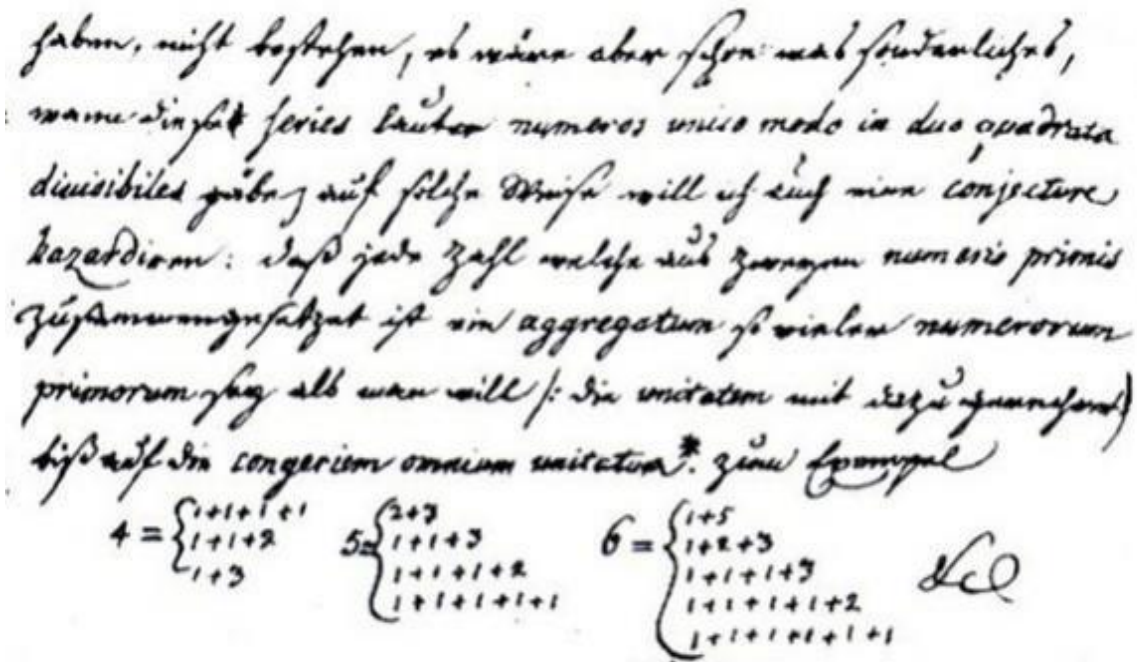 haben, nicht bestehen, es wäre aber schon was sonderliches,
wann diese series lauter numeros unico modo in duo quadrata
divisibiles gäbe auf solche Weise will ich auch eine conjecture
hazardiren: daß jede Zahl welche aus zweyen numeris primis
zusammengesetzet ist ein aggregatum so vieler numerorum
primorum sey als man will /: die unitatem mit dazu gerechnet)
biß auf die congeriem omnium unitatum*. zum Exempel
4 = { 1+1+1+1
1+1+2
1+3
5 = { 2+3
1+1+3
1+1+1+2
1+1+1+1+1
6 = { 1+5
1+2+3
1+1+1+3
1+1+1+1+2
1+1+1+1+1+1